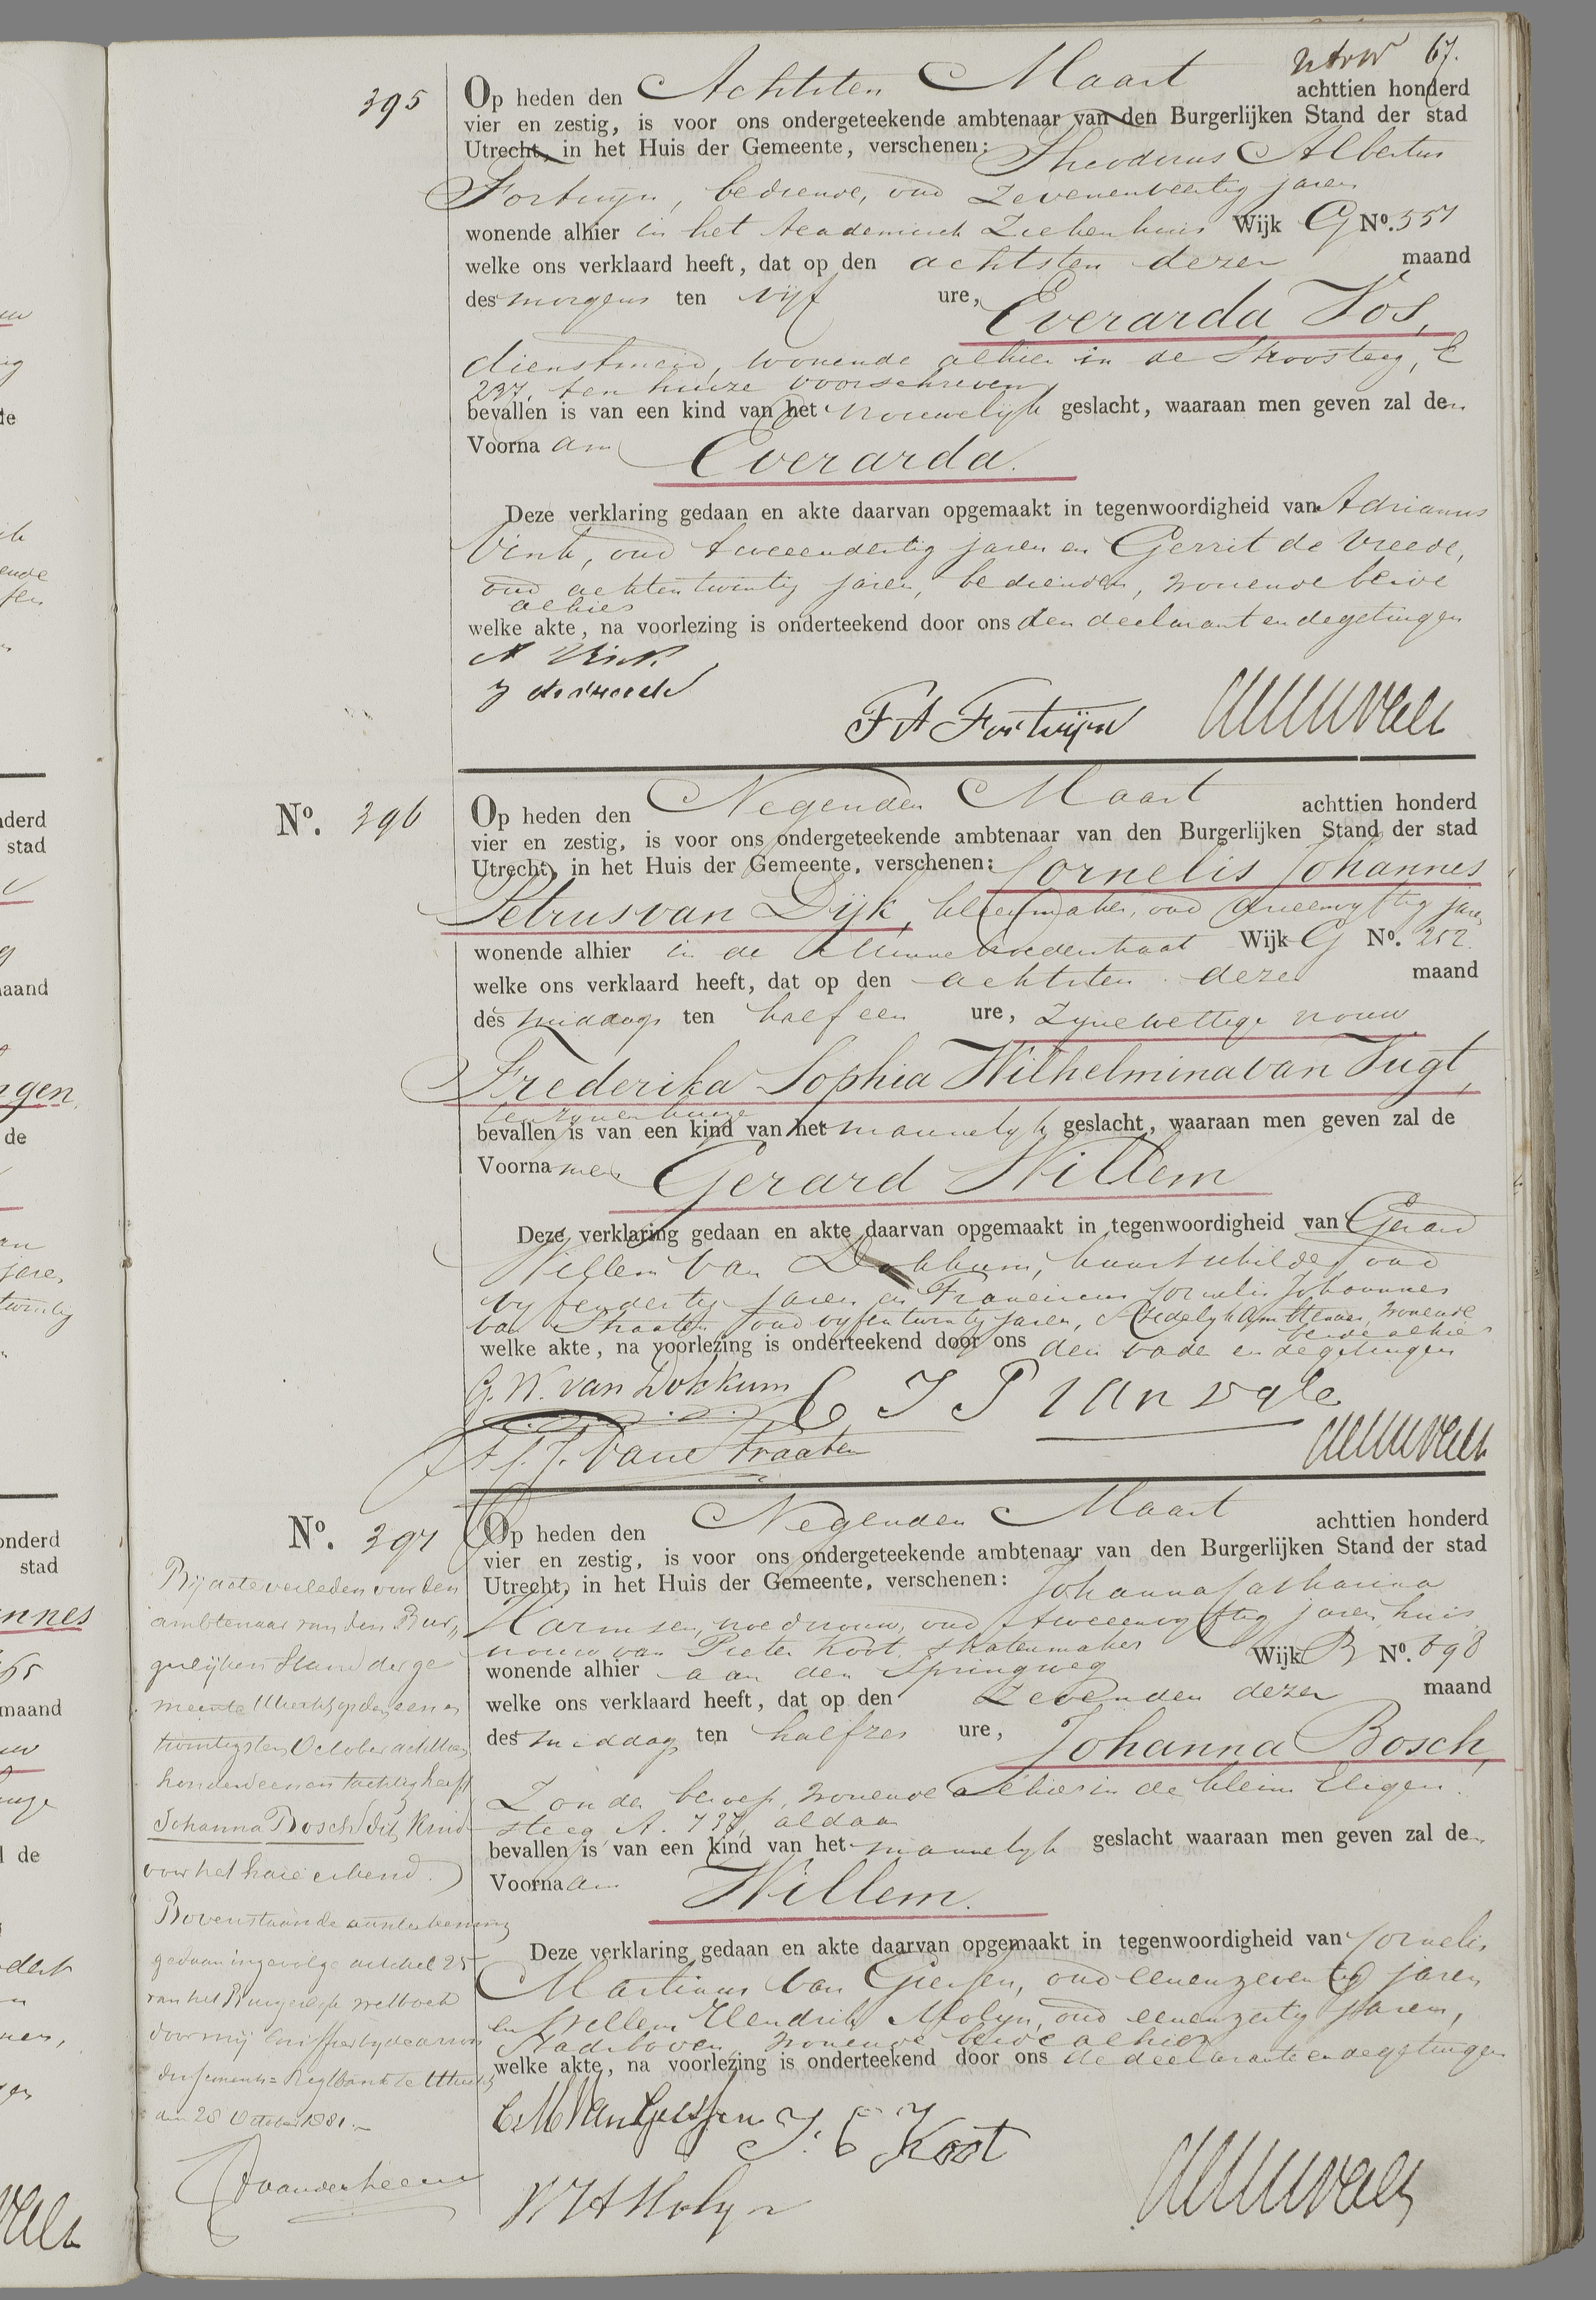 67.
395
Op heden den Achtsten Maart achttien honderd
vier en zestig, is voor ons ondergeteekende ambtenaar van den Burgerlijken Stand der stad
Utrecht, in het Huis der Gemeente, verschenen: Theodorus Albertus
Fortuyn, bediende, oud Zevenenveertig jaren
wonende alhier in het Academisch Ziekenhuis Wijk G No. 557
welke ons verklaard heeft, dat op den achtsten dezer maand
des morgens ten vijf ure, Everarda Vos,
dienstmeid, wonende alhier in de Stroosteeg, E
237, ten huize voorschreven
bevallen is van een kind van het vrouwelijk geslacht, waaraan men geven zal den
Voornaam Everarda.
Deze verklaring gedaan en akte daarvan opgemaakt in tegenwoordigheid van Adrianus
Vink, oud tweeendertig jaren en Gerrit de Vreede,
oud achtentwintig jaren, bedienden, wonende beide
alhier
welke akte, na voorlezing is onderteekend door ons den declarant en de getuigen
A Vink
g de vreede
T A Fortuijn
No. 396
Op heden den Negenden Maart achttien honderd
vier en zestig, is voor ons ondergeteekende ambtenaar van den Burgerlijken Stand der stad
Utrecht, in het Huis der Gemeente, verschenen: Cornelis Johannes
Petrus van Dijk, kleermaker, oud drieenvyftig jaren
wonende alhier in de Minnebroederstraat Wijk G No. 252
welke ons verklaard heeft, dat op den achtsten dezer maand
des middags ten half een ure, zyne wettige vrouw
Frederika Sophia Wilhelmina van Vugt,
ten zynen huize
bevallen is van een kind van het mannelyk geslacht, waaraan men geven zal de
Voornamen Gerard Willem
Deze verklaring gedaan en akte daarvan opgemaakt in tegenwoordigheid van Gerard
Willem van Dokkum, kunstschilder, oud
vyfendertig jaren en Franciscus Cornelis Johannes
van Straaten oud vyfentwintig jaren, Stedelyk Ambtenaar, wonende
beide alhier
welke akte, na voorlezing is onderteekend door ons den vader en de getuigen
G. W. van Dokkum
C J P van Dyk
F. C. J. van Straaten
No. 397
Op heden den Negenden Maart achttien honderd
vier en zestig, is voor ons ondergeteekende ambtenaar van den Burgerlijken Stand der stad
Utrecht, in het Huis der Gemeente, verschenen: Johanna Catharina
Harmsen, vroedvrouw, oud tweeenvyftig jaren, huis
vrouw van Pieter Koot, stoelenmaker
wonende alhier aan den Springweg Wijk B No. 698
welke ons verklaard heeft, dat op den Zevenden dezer maand
des middags ten halfzes ure, Johanna Bosch,
Zonder beroep, wonende alhier in de kleine Eligen
steeg A. 737, aldaar
bevallen is van een kind van het mannelyk geslacht waaraan men geven zal den
Voornaam Willem.
Deze verklaring gedaan en akte daarvan opgemaakt in tegenwoordigheid van Cornelis
Martinus van Giessen, oud eenenzeventig jaren
en Willem Hendrik Molyn, oud eenenzestig jaren,
Stadsboden, wonende beide alhier
welke akte, na voorlezing is onderteekend door ons de declarante en de getuigen
C. M. van Giessen
J. C Koot
W H Molyn
Bij acte verleden voor den
ambtenaar van den Bur-
gerlijken Stand der ge
meente Utrecht op den een en
twintigsten October achttien
honderd een en tachtig heeft
Johanna Bosch dit kind
voor het hare erkend.
Bovenstaande aanteekening
gedaan ingevolge artikel 25
van het Burgerlijk wetboek
door mij Griffier bij de arron
dissements-Regtbank te Utrecht
den 28 October 1881.